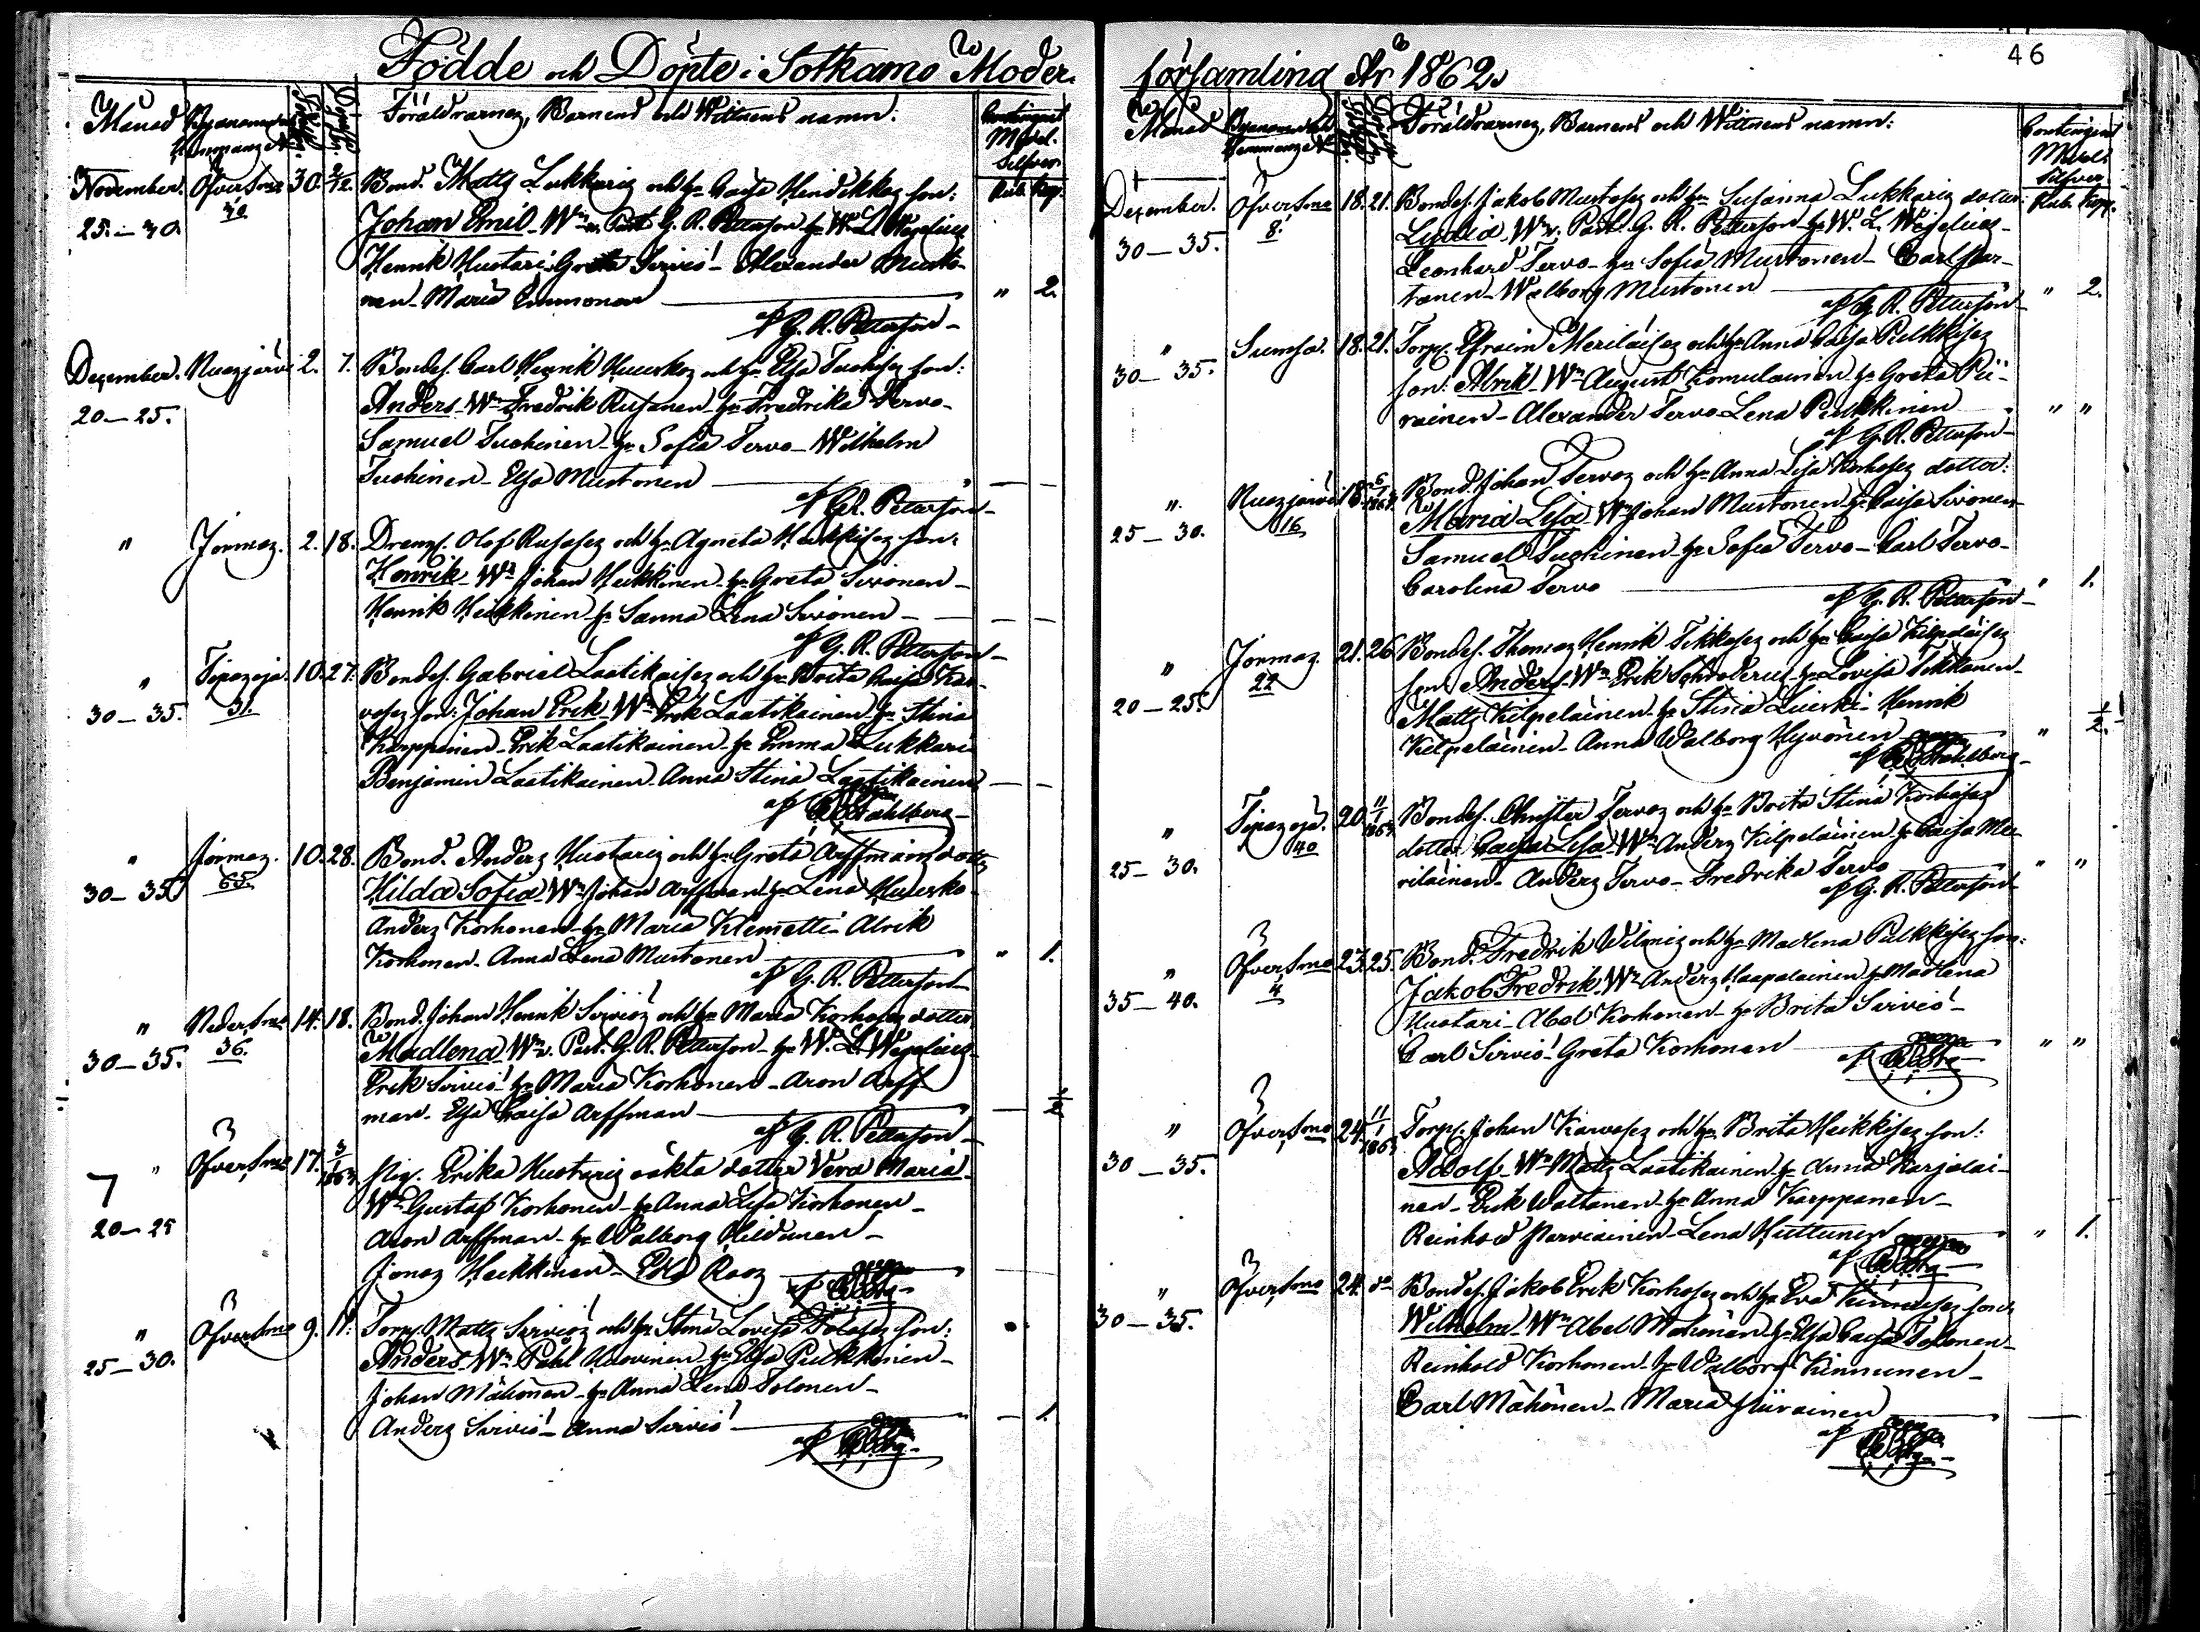 46
Födde och Döpte i Sotkamo Moder-
Månad
Föräldrarnes, Barnens och Wittnens namn.
November. Öfversmo 30. 2/12. Bond. Matts Lukkaris och h. Caisa Heikkis son:
25-30. Johan Emil. Wn. Past. G. R. Petterson h. W. L. Wegelius
Henrik Huotari Greta Servio Alexander Musto-
nen Maria Emmonen " 2.
af G. R. Petterson
December. Nuasjärvi 2. 7. Bondes. Carl Henrik Huuskos och h. Elsa Tuohises son:
20-25. Anders Wn Fredrik Rusanen h. Fredrika Tervo
Samuel Tuohinen h. Sofia Tervo Wilhelm
Tuohinen Elsa Mustonen
af G. R. Petterson
" Jormas. 2. 18. Drengs. Olof Ruses och h. Agneta Heikkises son:
Henrik Wn Johan Heikkinen h. Greta Sivonen
Henrik Heikkinen h. Sanna Lena Sivonen
af G. R. Petterson
" Tipasoja. 10. 27. Bondes. Gabriel Laatikaises och h. Brita Caisa Kar-
30-35. 31. voses son: Johan Erik Wn Erik Laatikainen h. Stina
Karppinen Erik Laatikainen h. Emma Lukkari
Benjamin Laatikainen Anna Stina Laatikainen
af Stahlberg
" Jormas. 10. 28. Bond. Anders Huotaris och h. Greta Arffmans dotter
30-35. 65. Hilda Sofia Wn Johan Arffman h. Lena Huusko
Anders Korhonen h. Maria Klemetti Alrik
Korhonen Anna Lena Mustonen " 1.
af G. R. Petterson
" Nedersmo 14. 18. Bond. Johan Henrik Serviös och h. Maria Korhoses dotter
30-35. 36. Madlena Wn. Past. G. R. Petterson h. W. L. Wegelius
Erik Serviö h. Maria Korhonen Aron Arff
man. Elsa Caisa Arffman 1/2
af G. R. Petterson
" Öfversmo 17. 3/1 1863 Pig. Erika Huotaris oäkta dotter Vera Maria
20-25 Wn Gustaf Korhonen h. Anna Lisa Korhonen
Aron Arffman h. Walborg Hildunen
Jonas Heikkinen
" Öfversmo 9. 11. Torp. Matts Serviös och h. Stina Lovisa Toloses son:
25-30. Anders Wn Påhl Huovinen h. Elsa Pulkkinen
Johan Mähönen h. Anna Lena Tolonen
Anders Serviö Anna Serviö 1.
församling År 1862.
Månad
Föräldrarnes, Barnens och Wittnens namn:
December. Öfversmo 18. 21. Bondes. Jakob Mustoses och h. Susanna Lukkaris dotter
30-35. 8. Lydia. Wn. Past. G. R. Petterson h. W. L. Wegelius
Leonhard Tervo h. Sofia Mustonen Carl
Walborg Mustonen " 2.
af G. R. Petterson
" Sumsa. 18. 21. Torp. Efraim Meriläises och h. Anna Caisa Pulkkises
30-35. son: Alrik Wn August Komulainen h. Greta Pii-
rainen Alexander Tervo Lena Pulkkinen " "
af G. R. Petterson
" Nuasjärvi 18. 6/1 1863 Bond. Johan Tervos och h. Anna Lisa Korhoses dotter:
25-30. 16 Maria Lisa Wn Johan Mustonen h. Caisa Sivonen
Samuel Tuohinen h. Sofia Tervo Carl Tervo
Carolina Tervo " 1.
af G. R. Petterson
" Jormas. 21. 26 Bondes. Thomas Henrik Tikkases och h. Caisa Kilpeläises
20-25. 22 son: Anders Wn Erik Schroderus h. Lovisa Tikkanen
Matts Kilpeläinen h. Stina Leinski Henrik
Kilpeläinen Anna Walborg Hyvönen " 1/2.
af Stahlberg
" Tipasoja. 20. 11/1 1863 Bondes. Christer Tervos och h. Brita Stina Korhoses
25-30. 40 dotter: Caisa Lisa Wn Anders Kilpeläinen h. Caisa Me-
riläinen Anders Tervo Fredrika Tervo " "
af G. R. Petterson
" Öfversmo 23. 25. Bond. Fredrik Wilmis och h. Madlena Pulkkises son:
35-40. 4 Jakob Fredrik Wn Anders Haapalainen h. Madlena
Huotari Abel Korhonen h. Brita Serviö
Carl Serviö Greta Korhonen " "
" Öfversmo 24. 11/1 1863 Torp. Johan Karvoses och h. Brita Heikkises son:
30-35. Adolf Wn Matts Laatikainen h. Anna Karjalai-
nen Erik Waltanen h. Anna Karppanen
Reinhold Parviainen Lena Huttunen " 1.
" Öfversmo 24. do Bondes. Jakob Erik Korhoses och h. Eva Kinnuses son:
30-35. Wilhelm Wn Abel Mähönen h. Elsa Caisa Tolonen
Reinhold Korhonen h. Walborg Kinnunen
Carl Mähönen Maria Piirainen